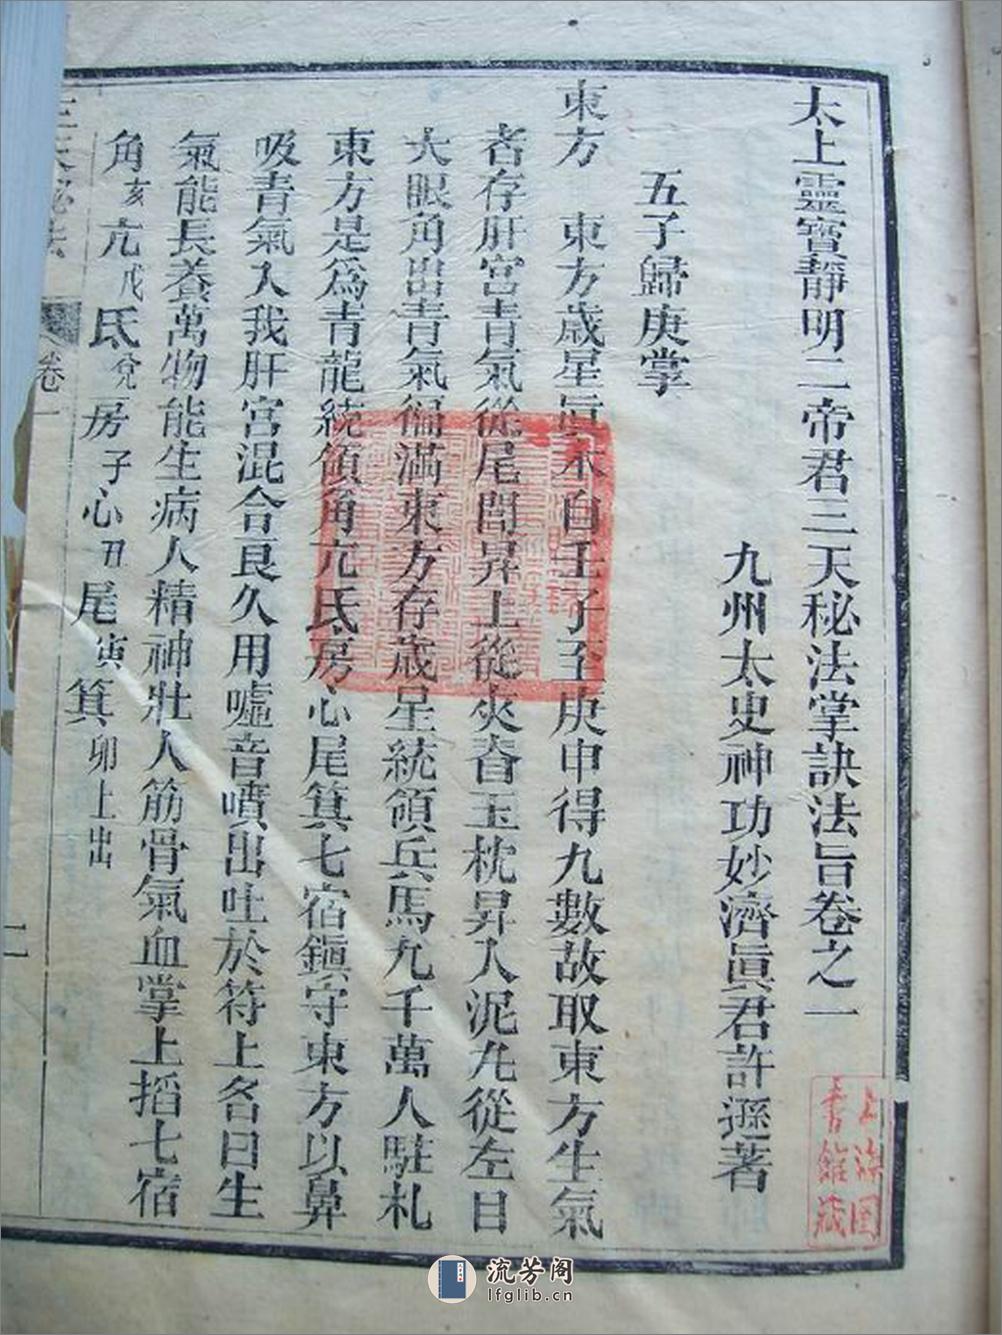 太上靈寶靜明二帝君三天秘法掌訣法旨卷之一
九州太史神功妙濟眞君許遜著
五子歸庚掌
東方　東方歲星眞木自壬子至庚申得九數故取東方生氣
者存肝宮青氣從尾閭昇上從夾脊玉枕昇入泥丸從左目
大眼角出青氣徧滿東方存歲星統領兵馬九千萬人駐札
東方是爲青龍統領角亢氐房心尾箕七宿鎭守東方以鼻
吸青氣入我肝宮混合良久用噓音噴出吐於符上名曰生
氣能長養萬物能生病人精神壯人筋骨氣血掌上搯七宿
角亥亢戌氐兌房子心丑尾寅箕卯上出
卷一
二
上海图
書館藏
流芳阁
lfglib.cn